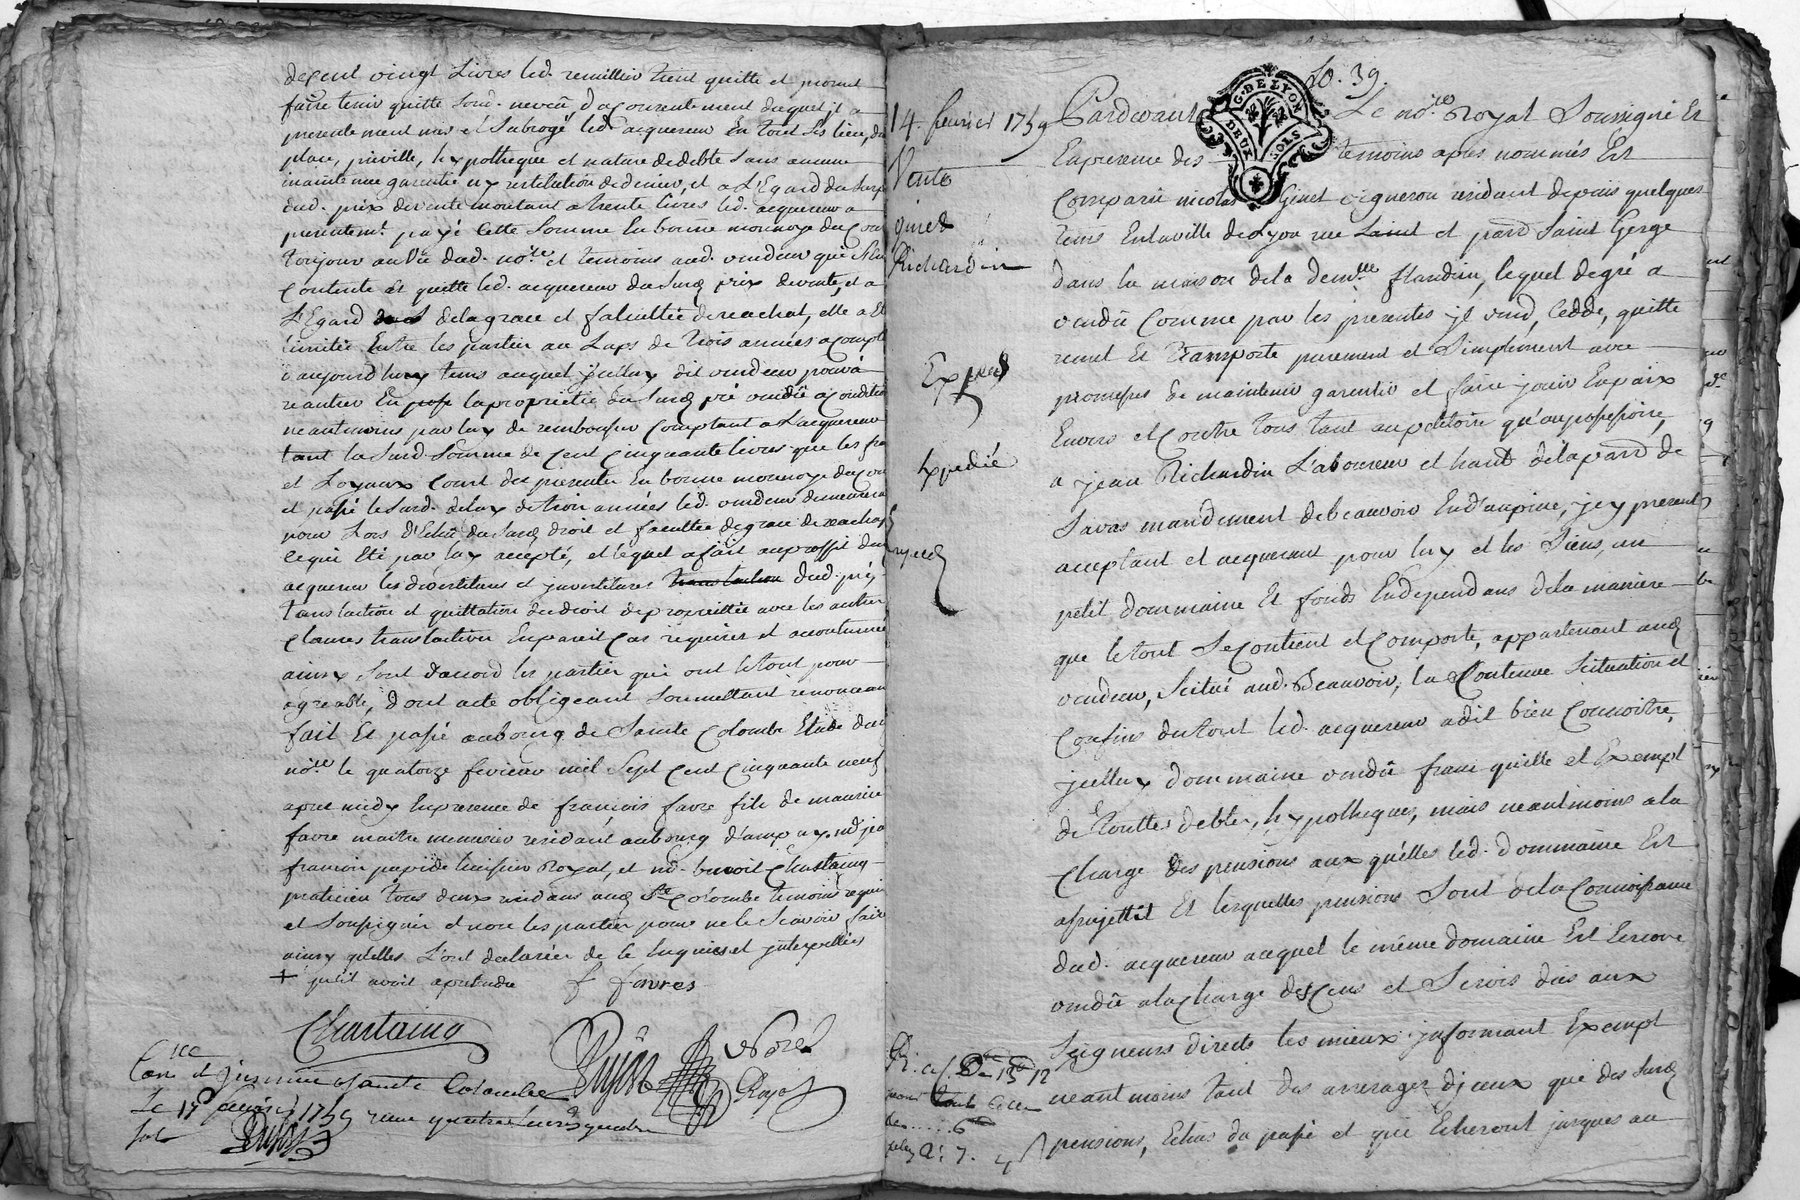 de cent vingt Livres led. remillier tient quitte et promet
faire tenir quitte Sond. neveu, d'acquereur
presentement mis et Subrogé led. acquereur En tout Ses lieu, du
place, priville, hypotheque et nature de debte Sans aucune
maintenue garentie ny restitution de denier, et a L'Egard du Surp
dud. prix de vente montant a trente livres led. acquereur a
presentemt. payé Cette Somme En bonne monnoye du Cour
toujour au Vû dud. nore. et temoins aud. vendeur qui S'En
Contente et quitte led. acquereur du Susd. prix de vente, et a
L'Egard de la grace et faculltée de reachat, elle a Eté
limitée Entre les parties au Laps de trois années a Compter
d'aujourd'huy tems auquel ycelluy dit vendeur pourra
reantrer En la proprietté du Susd. pré vendû a Condition
neantmoins par luy de rembourser Comptant a L'acquereur
tant la Susd. Somme de Cent Cinquante livres que les frai
et Loyaux Couts des presentes En bonne monnoye du Cour
et passé le Susd. delay de trois années led. vendeur demeurera
pour Lors d'Echû du Susd. droit et facultée de grace de reachapt
Ce qui Eté par luy accepté, et lequel a fait au proffit dud.
acquereur les divestiture et jnvestitures translation dud. pré,
translaction et quittation du droit de proprietté avec les autres
Clauses translactives En pareil Cas requises et accoutumée
ainsy Sont d'accord les parties qui ont le tout pour
agreable, dont acte obligeant Soumettant renonceant
fait Et passé au bourg de Sainte Colombe Etude dud.
nore. le quatorze fevrier mil Sept Cent Cinquante neuf
apres midy En presence de françois favre fils de maurice
favre maitre menusier residant au bourg d'ampuy, md. jea
françois huissier Royal, et md. benoit Chastaing
praticien tous deux residans aud. Ste. Colombe temoins requi
et Soussignés et non les parties pour ne le Scavoir faire
ainsy qu'elles L'ont declarées de ce Enquises et jnterpellées
+ qu'il avoit
f favres
Chastaing
Noiel
Dujast
Controllé et jnsinué a Sainte Colombe
Le 15 fevrier 1759 reçu quatre livres
Dujast
fo. 39.
14. fevrier 1759
Vente
ginet
Richardin
Exped
Expedié
G. DE LYON
DEUX SOLS
Pardevant Le nore. Royal Soussigné Et
En presence des temoins apres nommés Est
Comparû nicolas Ginet vigneron residant depuis quelques
tems En la ville de Lyon rue Saint et paroisse Saint Gerge
dans la maison de la demlle. flandrin, lequel de gré a
vendû Comme par les presentes jl vend, Cedde, quitte
remet Et Transporte purement et Simplement avec
promesses de maintenir garentir et faire jouir En paix
Envers et Contre tous tant au petitoire qu'au possessoire,
a jean Richardin L'aboureur et habt. de la parr. de
Savas mandement de beauvoir En d'aupiné, jcy present
acceptant et acquerant pour luy et les Siens, un
petit dommaine Et fonds En dependans de la maniere
que le tout Se Contient et Comporte, appartenant aud.
vendeur, Scitué aud. Beauvoir, la Contenue Scituation et
Confins du tout led. acquereur a dit bien Connoitre,
jcelluy dommaine vendû franc quitte et Exempt
de touttes debtes, hypotheques, mais neantmoins a la
Charge des pensions aux qu'elles led. dommaine Est
assujettit Et lesquelles pensions Sont de la Connoissance
dud. acquereur auquel le même domaine Est Encore
vendû a la Charge des Cens et Servis dûs aux
Seigneurs directs les mieux jnformant Exempt
neant moins tant des arrerages d'jceux que des Susd.
pensions, Echus du passé et qui Echeront jusques au